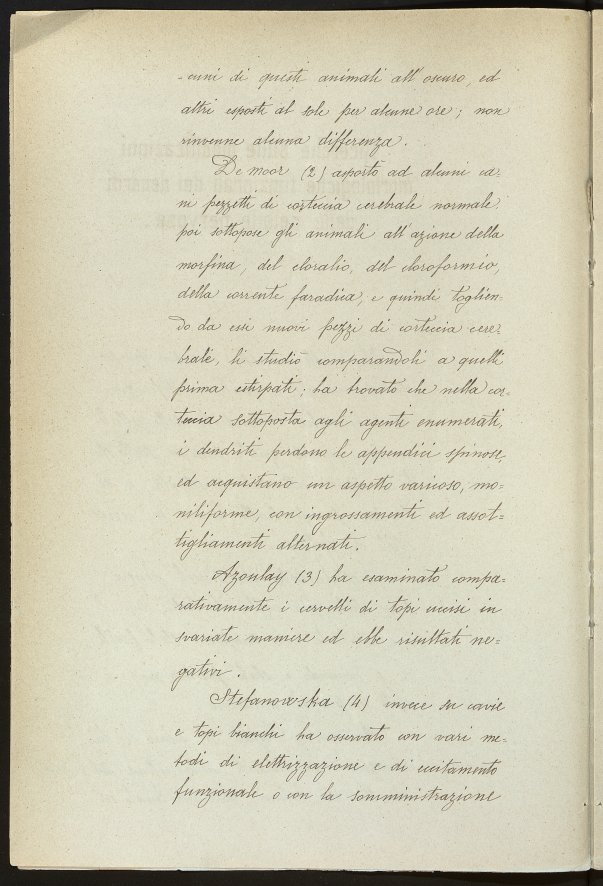 -cuni di questi animali all'oscuro, ed
altri esposti al sole per alcune ore; non
rinvenne alcuna differenza.
De moor (2) asportò ad alcuni ca=
ni pezzetti di corteccia cerebrale normale
poi sottopose gli animali all'azione della
morfina, del cloralio, del cloroformio,
della corrente faradica, e quindi toglien=
do da essi nuovi pezzi di corteccia cere=
brale, li studiò comparandoli a quelli
prima estirpati; ha trovato che nella cor=
teccia sottoposta agli agenti enumerati,
i dendriti perdono le appendici spinose,
ed acquistano un aspetto varicoso, mo=
niliforme, con ingrossamenti ed assot=
tigliamenti alternati.
Azoulay (3) ha esaminato compa=
rativamente i cervelli di topi uccisi in
svariate maniere ed ebbe risultati ne=
gativi.
Stefanowska (4) invece su cavie
e topi bianchi ha osservato con vari me=
todi di elettrizzazione e di eccitamento
funzionale o con la somministrazione